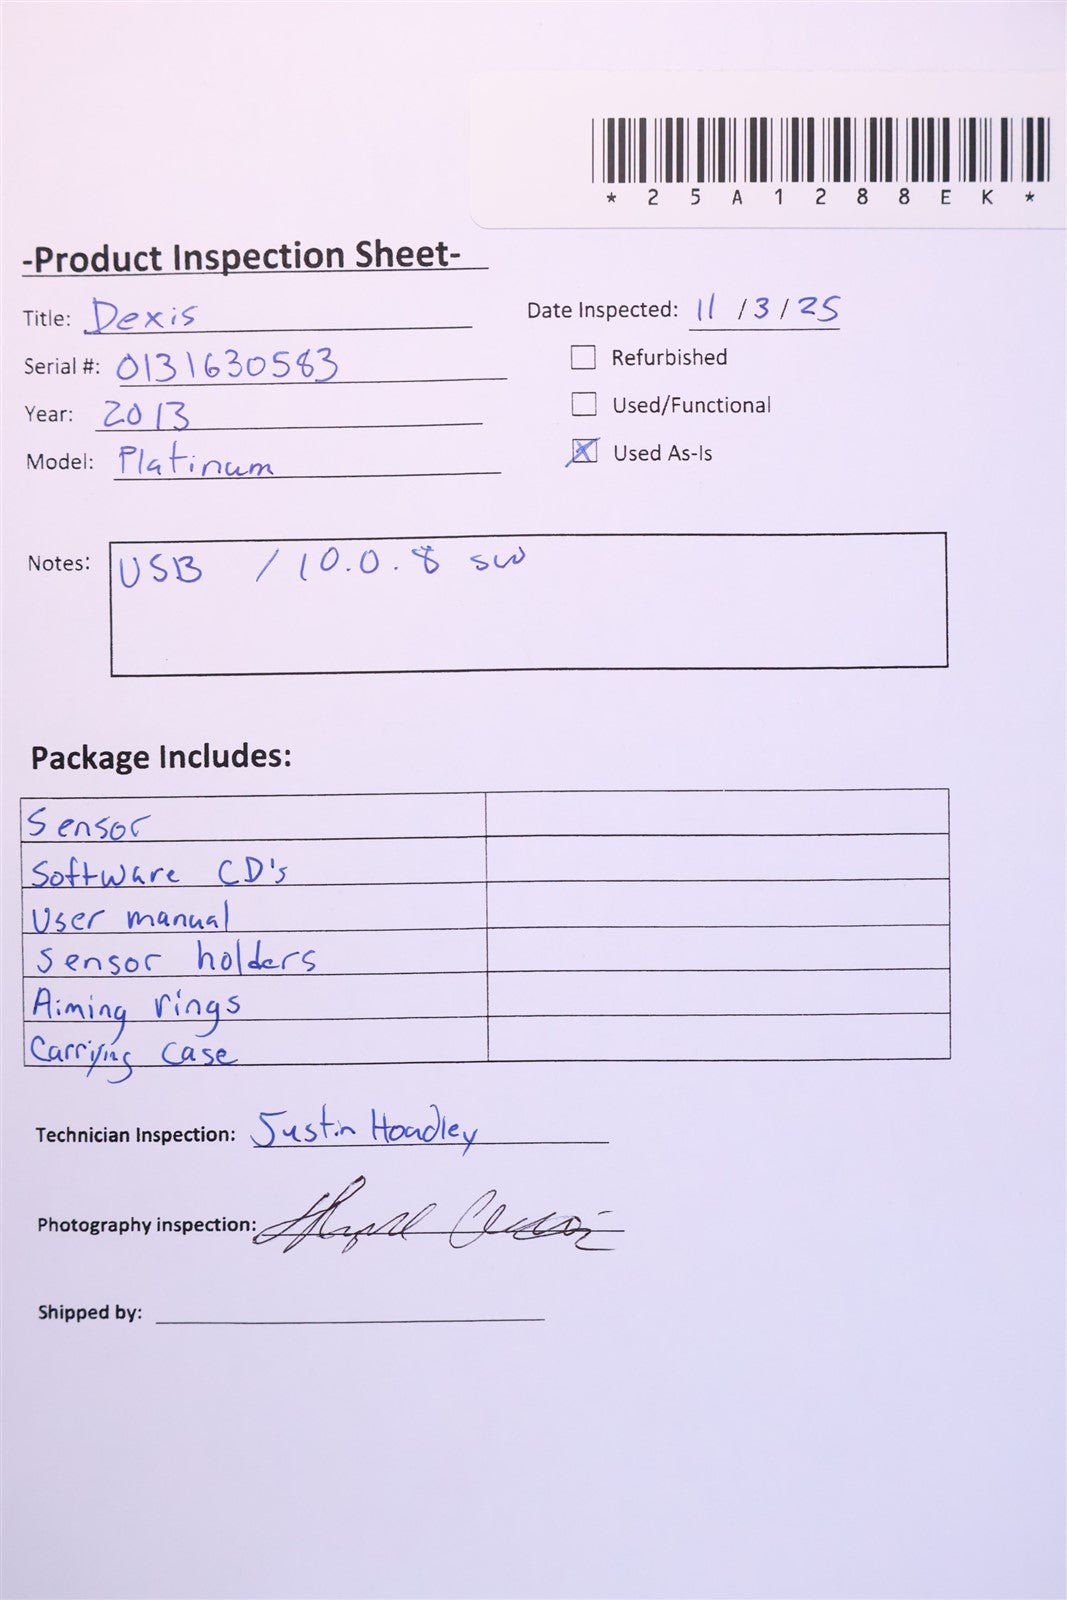 *25A1288EK*
-Product Inspection Sheet-
Title: Dexis
Date Inspected: 11/3/25
Serial #: 0131630583
Refurbished
Year: 2013
Used/Functional
Model: Platinum
Used As-Is
Notes: USB / 10.0.8 sw
Package Includes:
Sensor
Software CD's
User manual
Sensor holders
Aiming rings
Carrying case
Technician Inspection: Justin Hoadley
Photography inspection:
Shipped by: